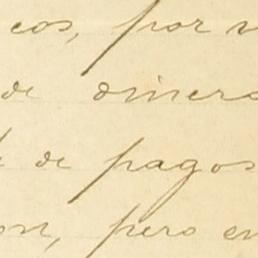 cos, por
de dinero
de pagos
on, pero en